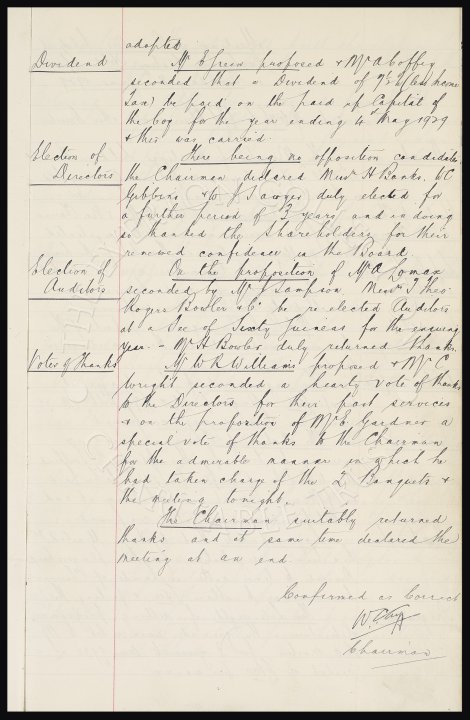 adopted.
Dividend
Mr E Green proposed & Mr A Coffey
seconded that a Dividend of 7½% (less Income
Tax) be paid on the paid up Capital of
the Coy for the year ending 4th May 1929
& this was carried.
Election of
Directors
There being no opposition candidates
the Chairman declared Messrs H Banks, W C
Gibbins & W J Sawyer duly elected for
a further period of 3 years, and in doing
so thanked the Shareholders for their
renewed confidence in the Board
Election of
Auditors
On the proposition of Mr A Lomax
seconded by Mr J Sampson Messrs J Theo.
Rogers Bowler & Co be re-elected Auditors
at a Fee of Sixty Guineas for the ensuing
year. - Mr H Bowler duly returned thanks.
Votes of Thanks
Mr W R Williams proposed & Mr C
Wright seconded a hearty vote of thanks
to the Directors for their past services
& on the proposition of Mr E Gardner a
special vote of thanks to the Chairman
for the admirable manner in which he
had taken charge of the 2 Banquets &
the meeting tonight.
The Chairman suitably returned
thanks and at same time declared the
meeting at an end.
Confirmed as Correct
Chairman